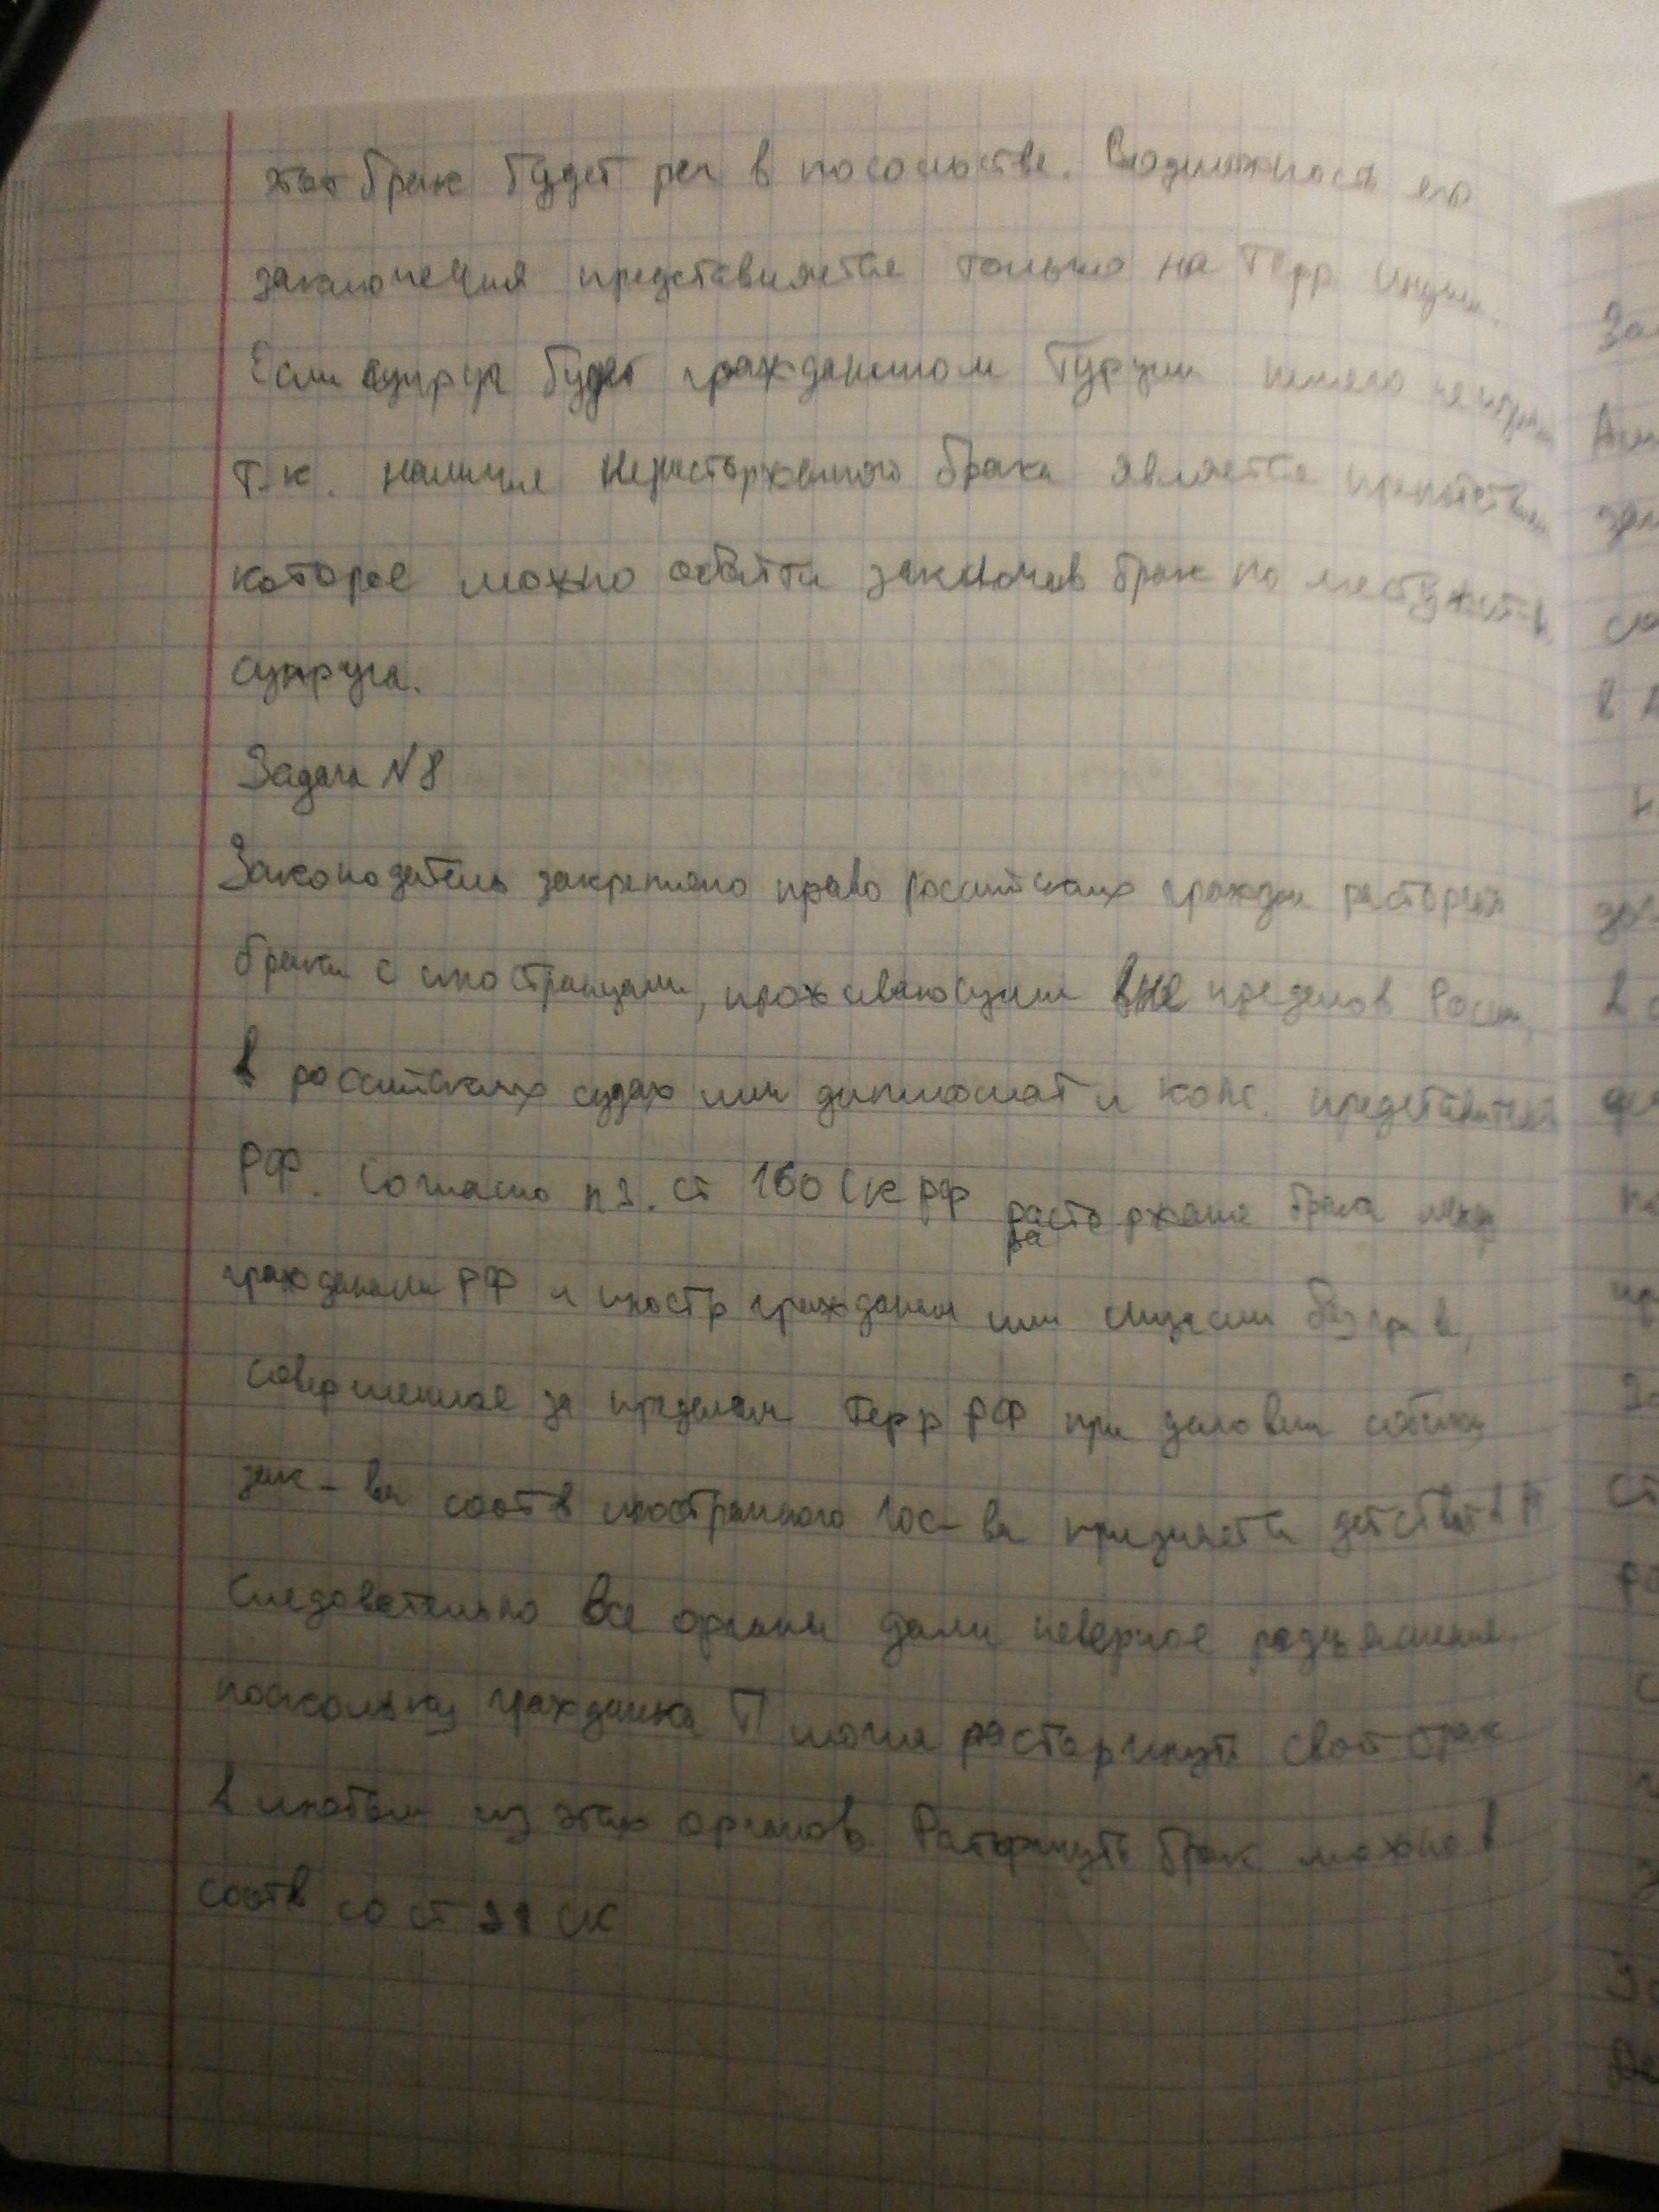 этот брак будет рег в посольстве. Возможность его
заключения представляется только на терр Индии.
Если супруг будет гражданином Турции ничего не изм
т.к. наличие нерасторженного брака является препятствием
которое можно обойти заключив брак по месту жит-ва
супруга.
Задача N8
Законодатель закреплено право российских граждан расторгать
браки с иностранцами, проживающими вне пределов России,
в российских судах или дипломат и конс. представител
РФ. Согласно п3. ст 160 СК РФ расторжение брака между
гражданами РФ и иностр гражданами или лицами без гр в,
совершенное за пределами терр РФ при условии
зак-ва соотв иностранного гос-ва признается действит в Р
Следовательно все органы дали неверное разъяснение,
поскольку гражданка П могла расторгнуть свой брак
в любом из этих органов. Расторгнуть брак можно в
соотв со ст 21 СК
За
в